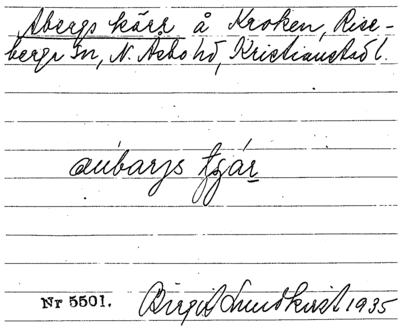 Åbergs kärr å Kroken, Rise-
berga sn, N. Åsbo hd, Kristianstads l.
åubarjs tjár
Nr 5501. Birgit Lundkvist 1935